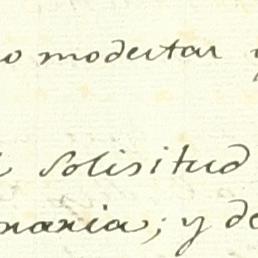 o modertar y
Solisitud
naria; y de